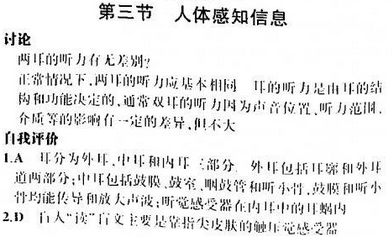 第三节 人体感知信息
讨论
两耳的听力有无差别?
正常情况下,两耳的听力应基本相同 耳的听力是由耳的结
构和功能决定的,通常双耳的听力因为声音位置、听力范围、
介质等的影响有一定的差异,但不大
自我评价
1.A 耳分为外耳、中耳和内耳三部分 外耳包括耳郭和外耳
道两部分;中耳包括鼓膜、鼓室、咽鼓管和听小骨,鼓膜和听小
骨均能传导和放大声波;听觉感受器在内耳中的耳蜗内
2.D 盲人“读”盲文主要是靠指尖皮肤的触压觉感受器